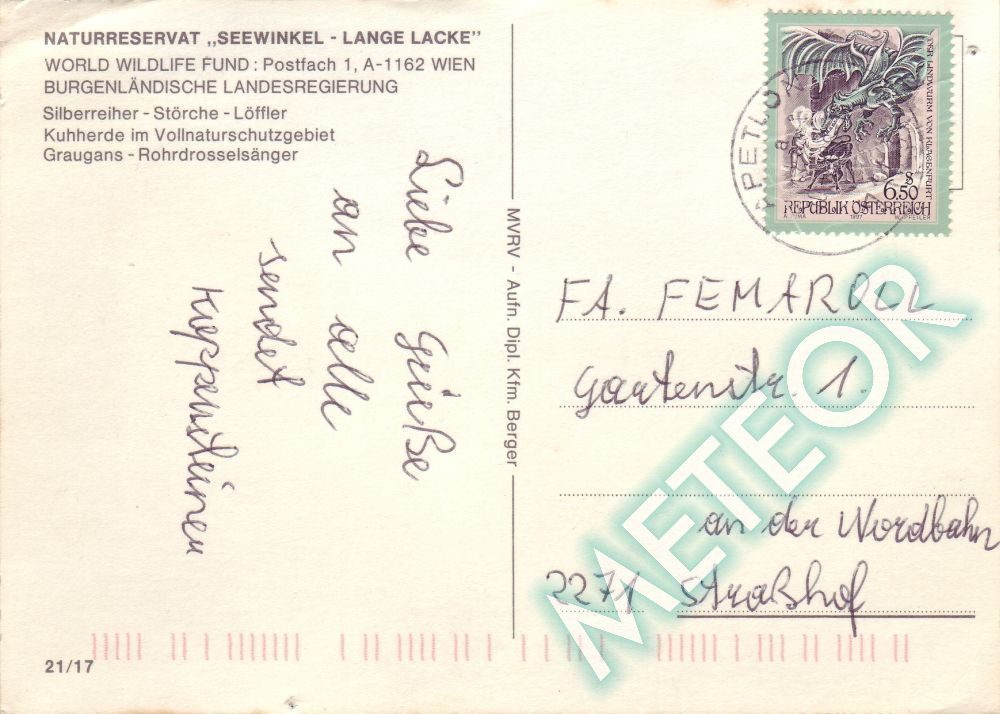 NATURRESERVAT „SEEWINKEL - LANGE LACKE”
WORLD WILDLIFE FUND : Postfach 1, A-1162 WIEN
BURGENLÄNDISCHE LANDESREGIERUNG
Silberreiher - Störche - Löffler
Kuhherde im Vollnaturschutzgebiet
Graugans - Rohrdrosselsänger
Liebe Grüße
an alle
sendet
MVRV - Aufn. Dipl. Kfm. Berger
APETLON
DER LINDWURM VON KLAGENFURT
S
6.50
REPUBLIK ÖSTERREICH
1997
FA. FEMAROLL
Gartenstr. 1.
an der Nordbahn
2271 Straßhof
METEOR
21/17